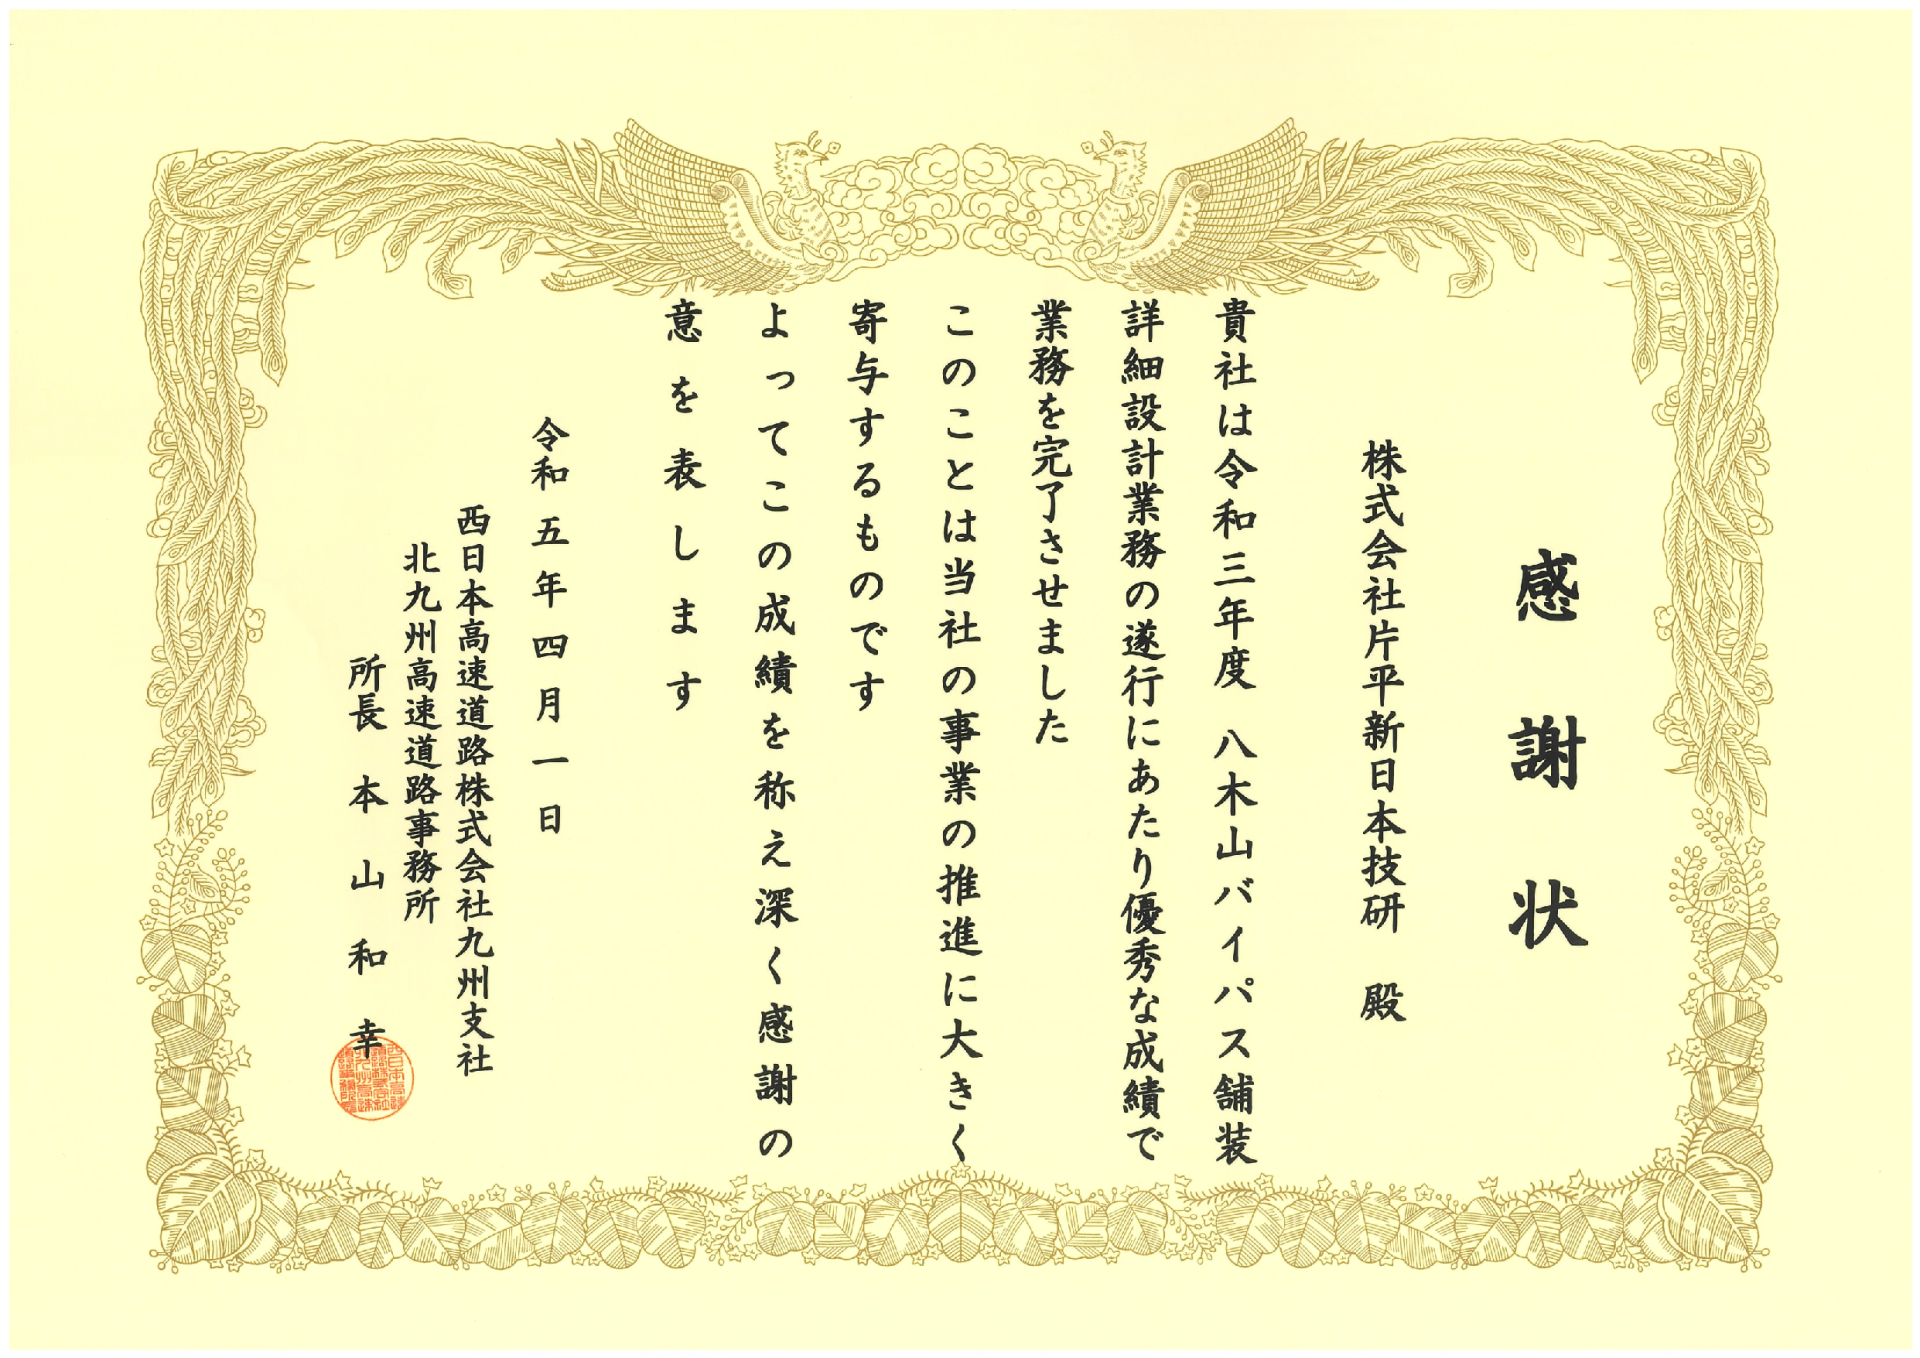 感謝状
株式会社片平新日本技研 殿
貴社は令和三年度 八木山バイパス舗装
詳細設計業務の遂行にあたり優秀な成績で
業務を完了させました
このことは当社の事業の推進に大きく
寄与するものです
よってこの成績を称え深く感謝の
意を表します
令和五年四月一日
西日本高速道路株式会社九州支社
北九州高速道路事務所
所長 本山和幸